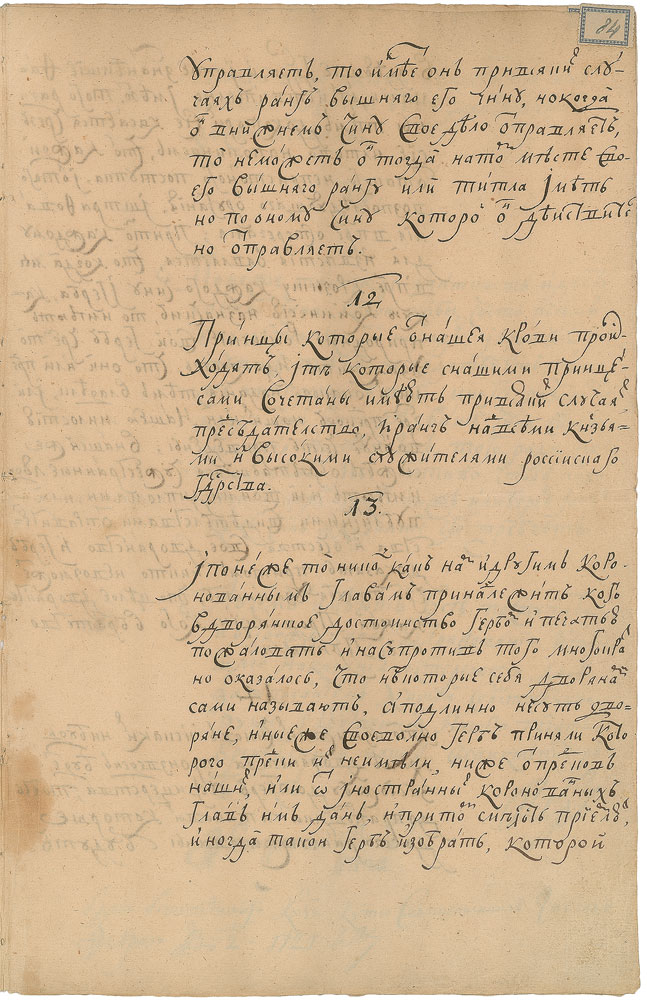 84
управляетъ, то имѣе онъ при всякихъ слу-
чаяхъ рангъ вышняго его чину, но когда
онъ в нижнемъ чину свое дѣло отправляетъ,
то не можетъ онъ тогда на томъ мѣсте сво-
его вышняго рангу или титла іметь
но по оному чину которой онъ дѣиствите
но отправляетъ.
12
Принцы которые отнашея крови произ-
ходятъ, ітѣ которые снашими принце-
сами сочетаны имѣютъ привсякихъ случаяхъ
пресѣдателство, ирангъ надвсѣми князья-
ми ивысокими служителями россиискаго
Гдрства.
13.
Іпонеже то никому какъ намъ идругимъ коро-
нованнымъ главамъ приналежитъ кого
вдворянное достоинство гербомъ ипечатью
пожаловать инасупротивъ того многокра
но оказалось, что нѣкоторые себя дворянами
сами называютъ, аподлинно несуть дво-
ряне, иныеже своеволно гербъ приняли кото
рого предки ихъ неимѣли, ниже от предковъ
нашихъ, или от іностранныхъ коронованыхъ
главъ имъ данъ, ипритомъ смѣлость приемлютъ,
иногда такои гербъ изобрать, которой